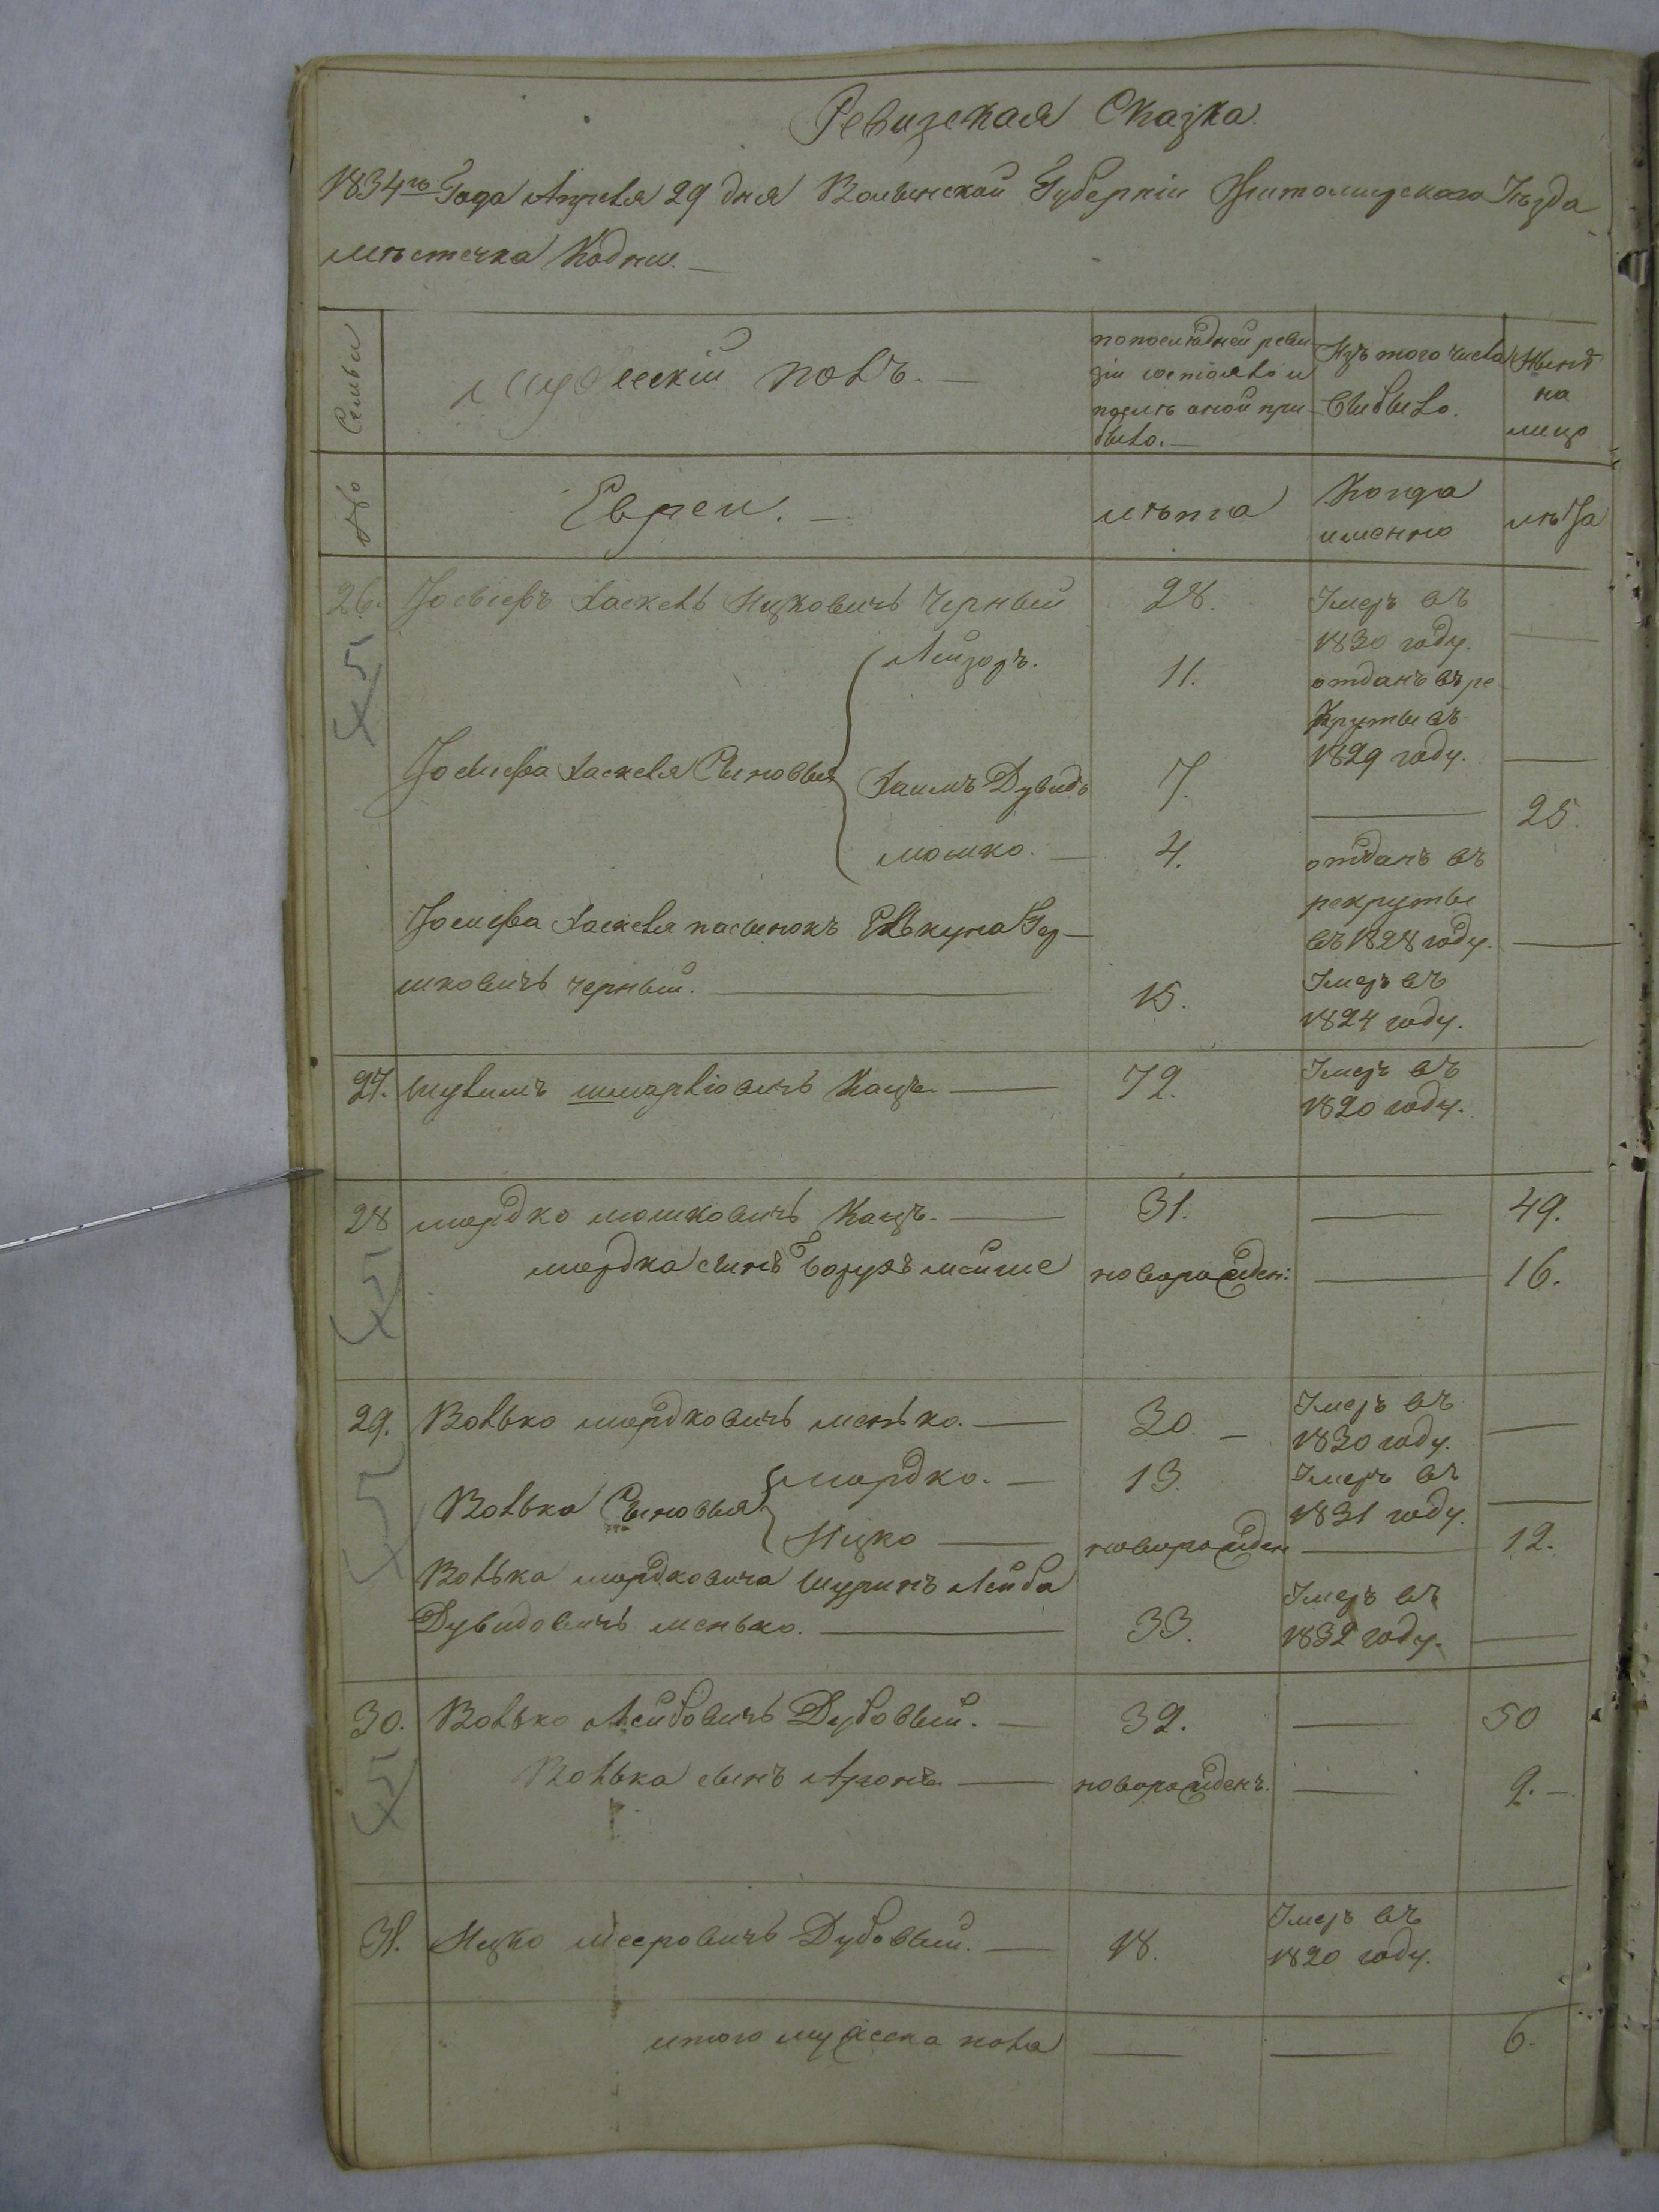 Ревизская Сказка
1834го Года Апреля 29 дня Волынской Губерніи Житомирского Уѣзда
мѣстечка Кодни. —
№ Семьи
мужескій полъ. —
по последней реви
зіи состояло и
послѣ оной при
было. —
Изъ того числа
Выбыло.
Нынѣ
на
лицо
Евреи. —
лѣта
Когда
именно
лѣта
26. Іосіофъ Хаскель Ицковичъ Черный 28. Умеръ въ
1830 году. —
Лейзоръ. 11. отданъ въ ре
круты въ
1829 году. —
Іосифа Хаскеля Сыновья Хаимъ Дувидъ 7. — 25.
Мошко. — 4. отданъ въ
рекруты
въ 1828 году. —
Іосифа Хаскеля пасынокъ Элькуна Гер-
шковичъ Черный. — 15. Умеръ въ
1824 году.
27. Шулимъ Шмарліовичъ Кацъ — 72. Умеръ въ
1820 году.
28 Мордко Мошковичъ Кацъ. — 31. — 49.
Мордка сынъ Борухъ Мейше новорожден: — 16.
29. Волько Мордковичъ Менько. — 30. — Умеръ въ
1830 году. —
Мордко. — 13. Умеръ въ
1831 году. —
Волька Сыновья Ицко — новорожден — 12.
Волька Мордковича Шуринъ Лейба
Дувидовичъ Менько. — 33. Умеръ въ
1832 году. —
30. Волько Лейбовичъ Дубовый. — 32. — 50
Волька сынъ Аронъ — новорожденъ. — 9. —
31. Ицко Мееровичъ Дубовый. — 18. Умеръ въ
1820 году.
итого мужеска пола — — 6.